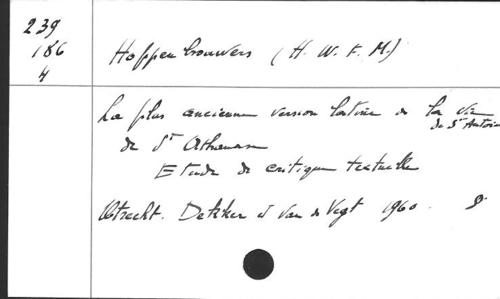 239
186
4
Hoppenbrouwers (H. W. F. M.)
La plus ancienne version latine de la vie
de St Antoine
de St Athanase
Etude de critique textuelle
Utrecht. Dekker & Van de Vegt 1960.